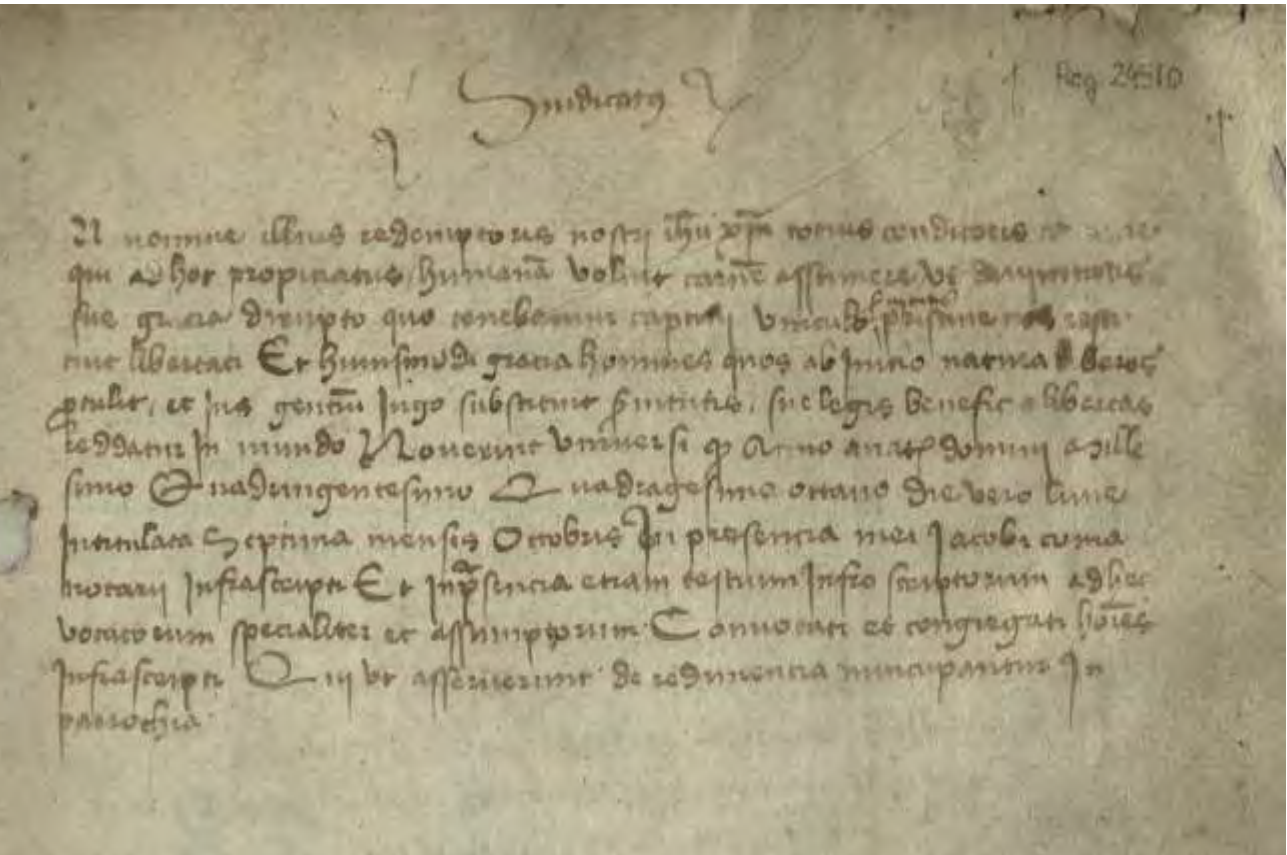 Sindicatus
Reg. 24510
N nomine illius redemptoris nostri ihu xpi totius conditoris
qui ad hoc propiciatus humanã voluit carnẽ assumere ut
sue gracia dirupto quo tenebamur captivi vinculo pristine nos resti
tuit libertati Et huiusmodi gracia homines quos ab inicio natura liberos
ptulit, et ius genciũ iugo substituit suitutis, sue legis benefic libertas
reddatur In mundo Noverint universi qd Anno a nat domini Mille
simo Quadringentesimo Quadragesimo octavo die vero lune
Intitulata Septima mensis Octobris In presencia mei Jacobi coma
notarii Infrascripti Et In psencia etiam testium Infrascriptorum ad hec
vocatorum specialiter et assumptorum Convocati et congregati hoies
Infrascripti Qui ut asseruerunt de redimencia nuncupantur In
parrochia